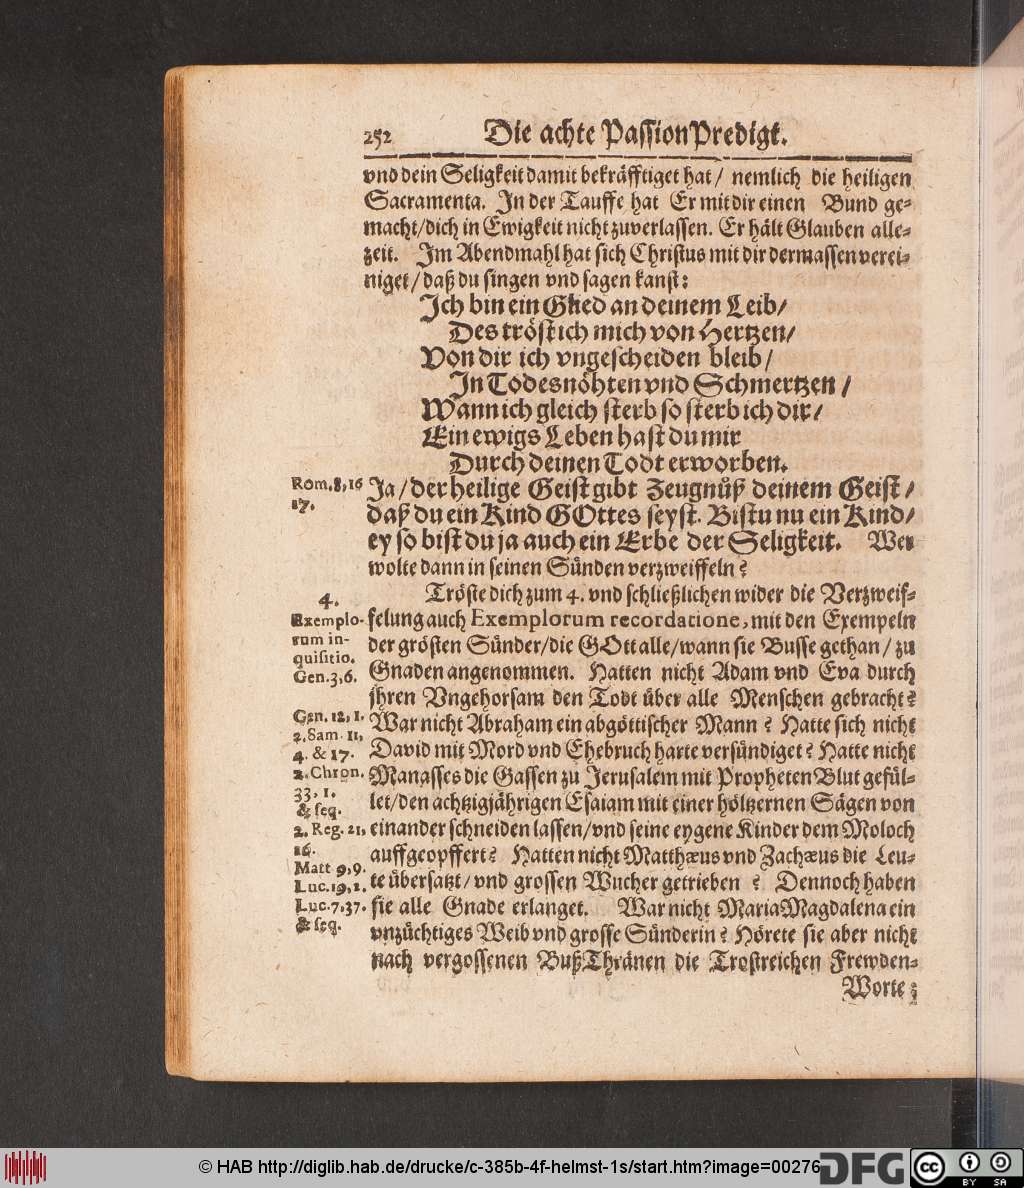 252 Die achte PassionPredigt.
vnd dein Seligkeit damit bekräfftiget hat/ nemlich die heiligen
Sacramenta. In der Tauffe hat Er mit dir einen Bund ge-
macht/dich in Ewigkeit nicht zuverlassen. Er hält Glauben alle-
zeit. Im Abendmahl hat sich Christus mit dir dermassen verei-
niget/daß du singen vnd sagen kanst:
Ich bin ein Glied an deinem Leib/
Des tröst ich mich von Hertzen/
Von dir ich vngescheiden bleib/
In Todesnöhten vnd Schmertzen/
Wann ich gleich sterb so sterb ich dir/
Ein ewigs Leben hast du mir
Durch deinen Todt erworben.
Rom.8,16
17.
Ja/der heilige Geist gibt Zeugnüß deinem Geist/
daß du ein Kind GOttes seyst. Bistu nu ein Kind/
ey so bist du ja auch ein Erbe der Seligkeit. Wer
wolte dann in seinen Sünden verzweiffeln?
4.
Exemplo-
rum in-
quisitio.
Gen.3,6.
Gen. 12, 1.
2.Sam. 11,
4. & 17.
2. Chron.
33, 1.
& seq.
2. Reg. 21,
16.
Matt 9,9.
Luc.19,2.
Luc.7,37.
& seq.
Tröste dich zum 4. vnd schließlichen wider die Verzweif-
felung auch Exemplorum recordatione, mit den Exempeln
der grösten Sünder/die GOtt alle/wann sie Busse gethan/zu
Gnaden angenommen. Hatten nicht Adam vnd Eva durch
jhren Vngehorsam den Todt über alle Menschen gebracht?
War nicht Abraham ein abgöttischer Mann? Hatte sich nicht
David mit Mord vnd Ehebruch harte versündiget? Hatte nicht
Manasses die Gassen zu Jerusalem mit ProphetenBlut gefül-
let/den achtzigjährigen Esaiam mit einer höltzernen Sägen von
einander schneiden lassen/vnd seine eygene Kinder dem Moloch
auffgeopffert? Hatten nicht Matthæus vnd Zachæus die Leu-
te übersatzt/vnd grossen Wucher getrieben? Dennoch haben
sie alle Gnade erlanget. War nicht MariaMagdalena ein
vnzüchtiges Weib vnd grosse Sünderin? Hörete sie aber nicht
nach vergossenen BußThränen die Trostreichen Frewden-
Worte:
© HAB http://diglib.hab.de/drucke/c-385b-4f-helmst-1s/start.htm?image=00276
DFG
cc BY SA